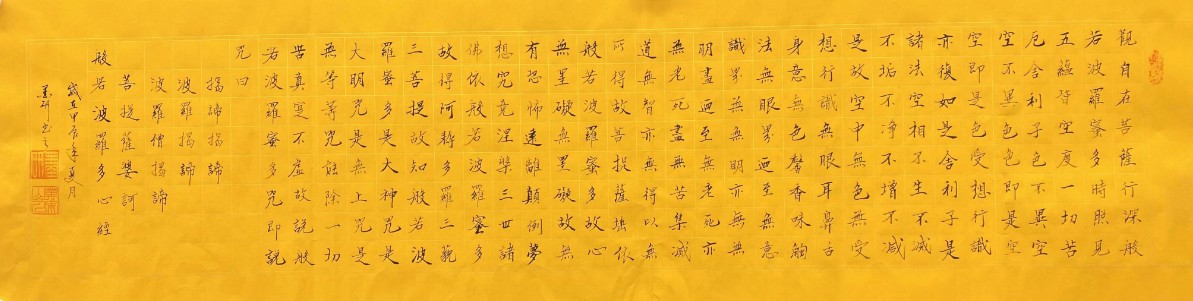 觀自在菩薩行深般
若波羅蜜多時照見
五蘊皆空度一切苦
厄舍利子色不異空
空不異色色即是空
空即是色受想行識
亦復如是舍利子是
諸法空相不生不滅
不垢不淨不增不減
是故空中無色無受
想行識無眼耳鼻舌
身意無色聲香味觸
法無眼界迺至無意
識界無無明亦無無
明盡迺至無老死亦
無老死盡無苦集滅
道無智亦無得以無
所得故菩提薩埵依
般若波羅蜜多故心
無罣礙無罣礙故無
有恐怖遠離顛倒夢
想究竟涅槃三世諸
佛依般若波羅蜜多
故得阿耨多羅三藐
三菩提故知般若波
羅蜜多是大神咒是
大明咒是無上咒是
無等等咒能除一切
苦真實不虛故說般
若波羅蜜多咒即說
咒曰
揭諦揭諦
波羅揭諦
波羅僧揭諦
菩提薩婆訶
般若波羅蜜多心經
歲在甲辰年夏月
墨研書之